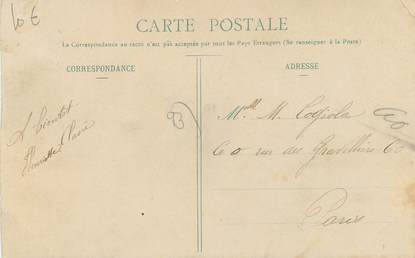 10 €
CARTE POSTALE
La Correspondance au recto n'est pas acceptée par tous les Pays Etrangers (Se renseigner à la Poste)
CORRESPONDANCE
ADRESSE
A bientôt
93
Mlle M.
60 rue des Gravilliers 60
Paris